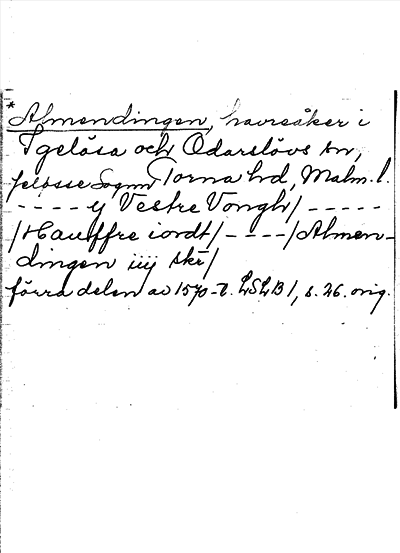 *Almendingen, havresåker i
Igelösa och Odarslövs sn,
Torna hd, Malm. l.
---- y Vestre Vongh/-----
/Hauffre iordt/----/Almen-
dingen iiij ske/
förra delen av 1570-t. LSLB 1, s. 26. orig.